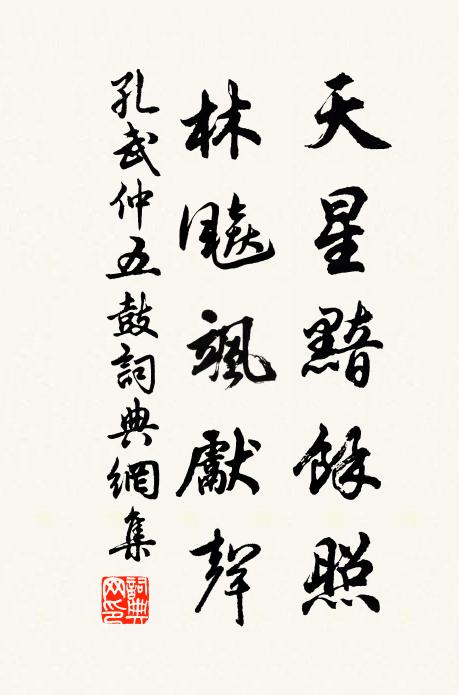 天星黯餘照
林飈颯獻聲
孔武仲五鼓詞典網集
詞典网印